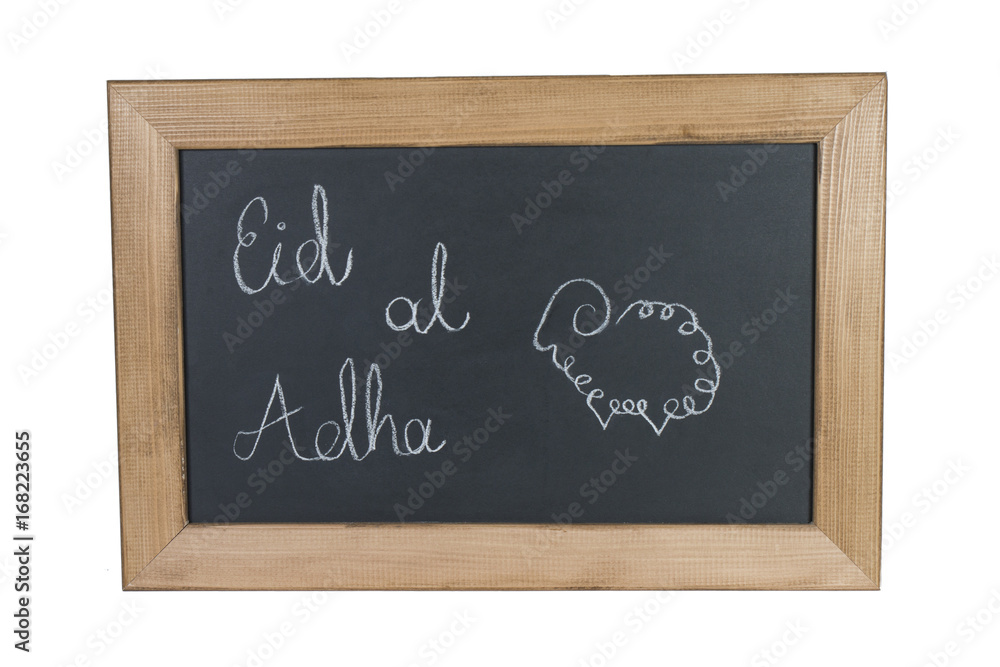 Eid
al
Adha
Adobe Stock | #168223655